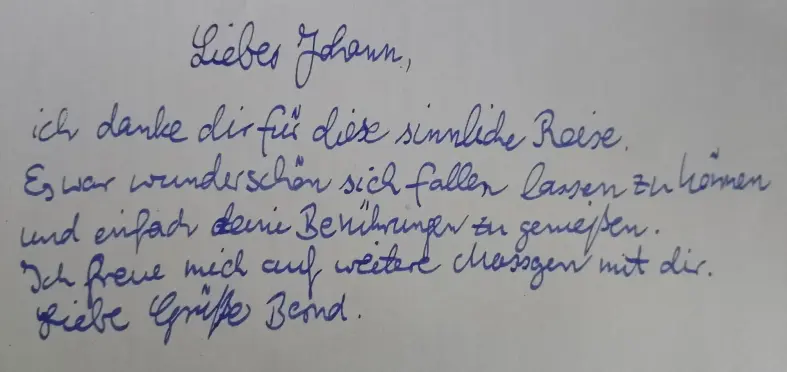 Liebes Johann,
ich danke dir für diese sinnliche Reise.
Es war wunderschön sich fallen lassen zu können
und einfach deine Berührungen zu genießen.
Ich freue mich auf weitere Massgen mit dir.
Liebe Grüße Bernd.